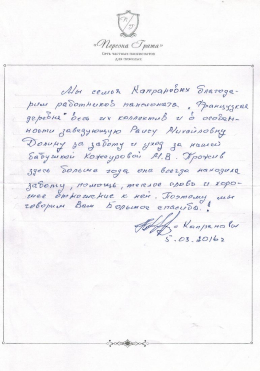 «Персона Грата»
сеть частных пансионатов
для пожилых
Мы семья Капрановых благода-
рим работников пансионата „Французская
деревня" весь их коллектив и в особен-
ности заведующую Раису Михайловну
Долину за заботу и уход за нашей
бабушкой Кожуровой М.В. Прожив
здесь больше года она всегда находила
заботу, помощь, теплое слово и хоро-
шее отношение к ней. Поэтому мы
говорим Вам Большое спасибо!
Капрановы
5.03.2016г